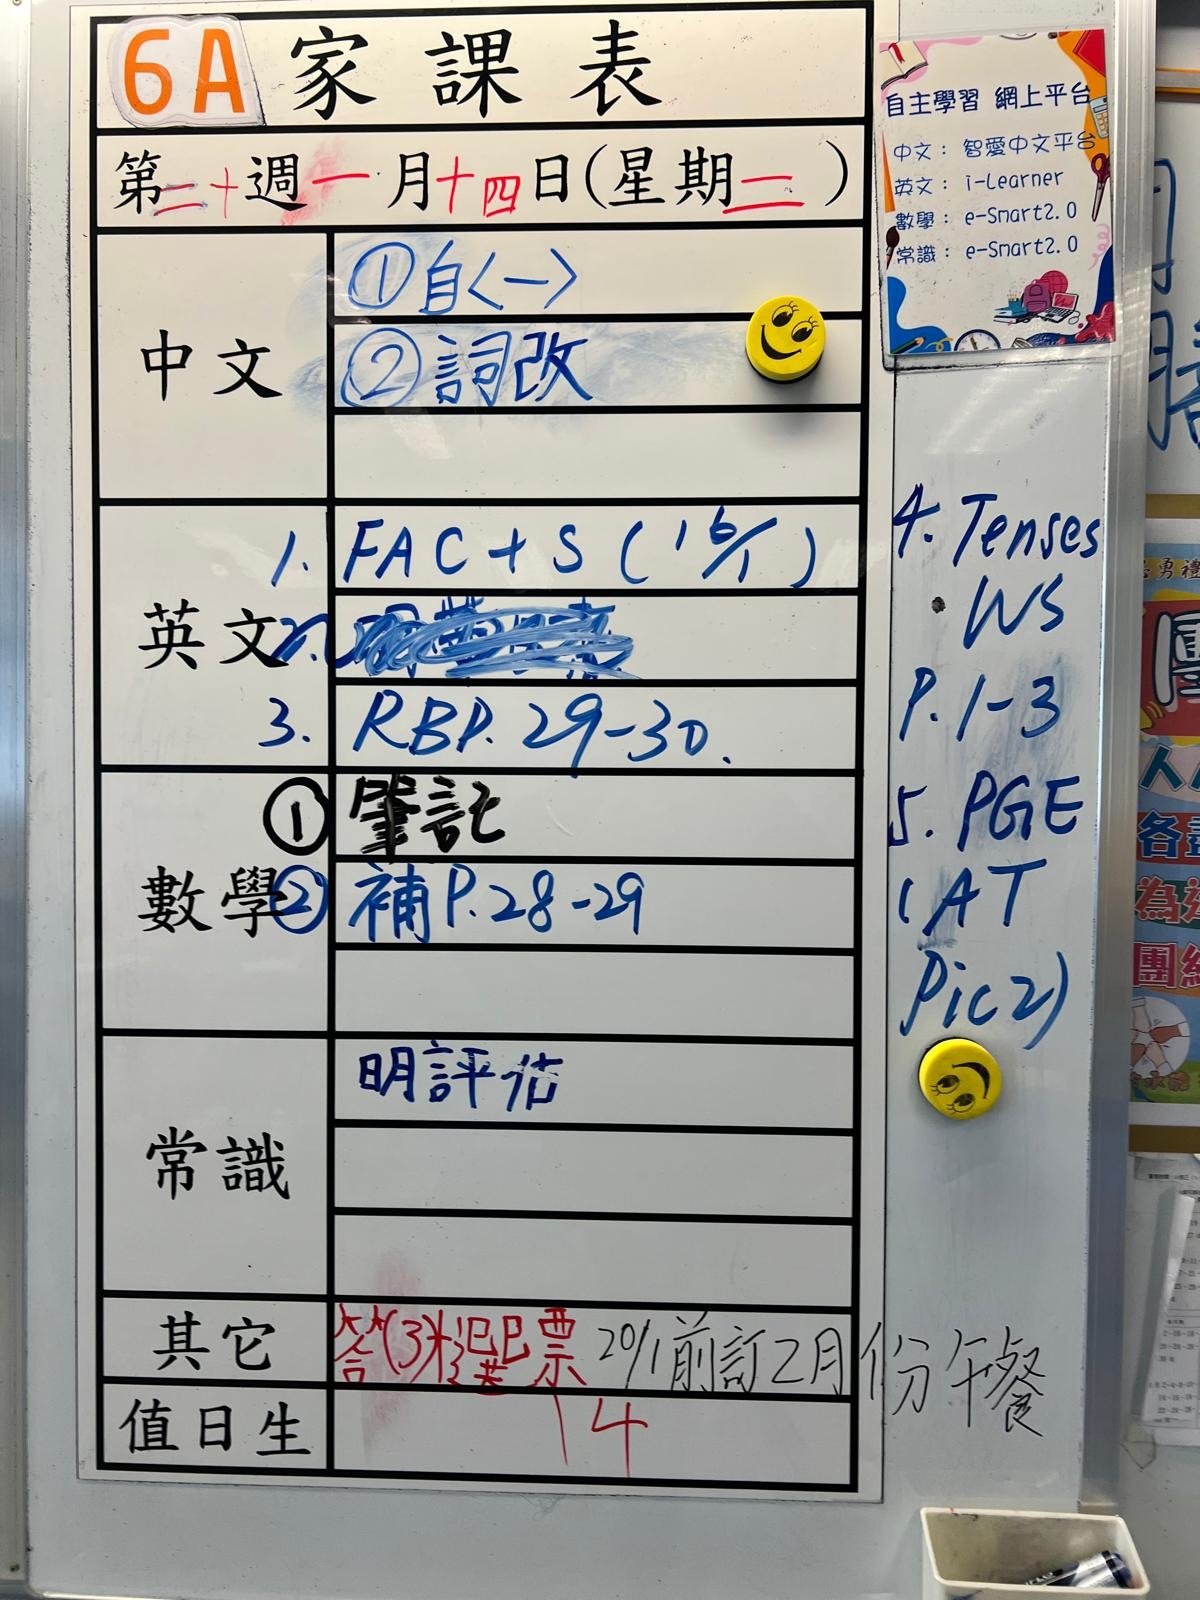 6A 家課表
第二十週一月十四日(星期二)
中文
①自〈一〉
②詞改
英文
1. FAC + S (16/1)
2.
3. RBP. 29-30.
4. Tenses
WS
P. 1-3
5. PGE
(AT
Pic 2)
數學
①筆記
②補P.28-29
常識
明評估
其它
答(3) 選 票 20/1前訂2月份午餐
值日生
14
自主學習 網上平台
中文： 智愛中文平台
英文： i-Learner
數學： e-Smart2.0
常識： e-Smart2.0
勇 禮
團
人
各盡
為
團結